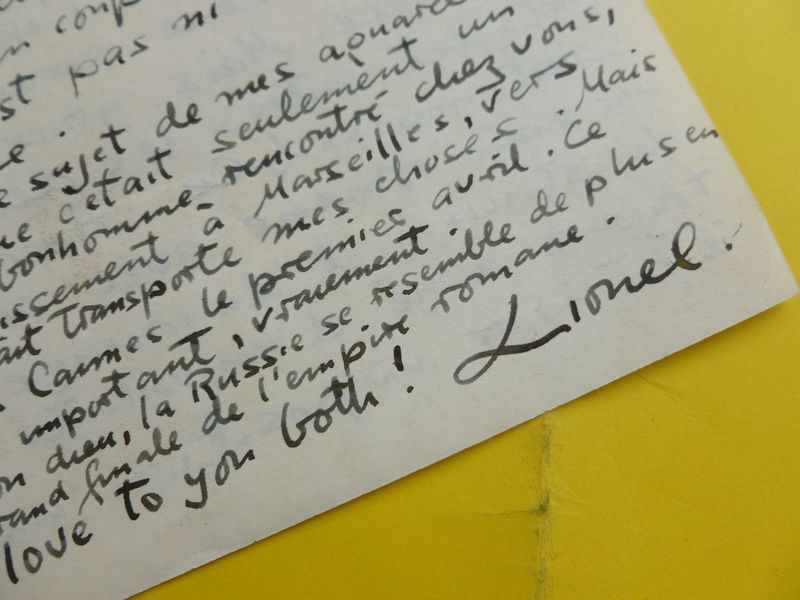 n coup
st pas ni
e. sujet de mes aquare
ue c'était seulement un
bonhomme rencontré chez vous,
issement à Marseilles, vers
ait transporté mes choses. Mais
Cannes le premies avril. Ce
important, vraiement.
on dieu, la Russie se resemble de plus en
rand finale de l'empire romane.
love to you both! Lionel.